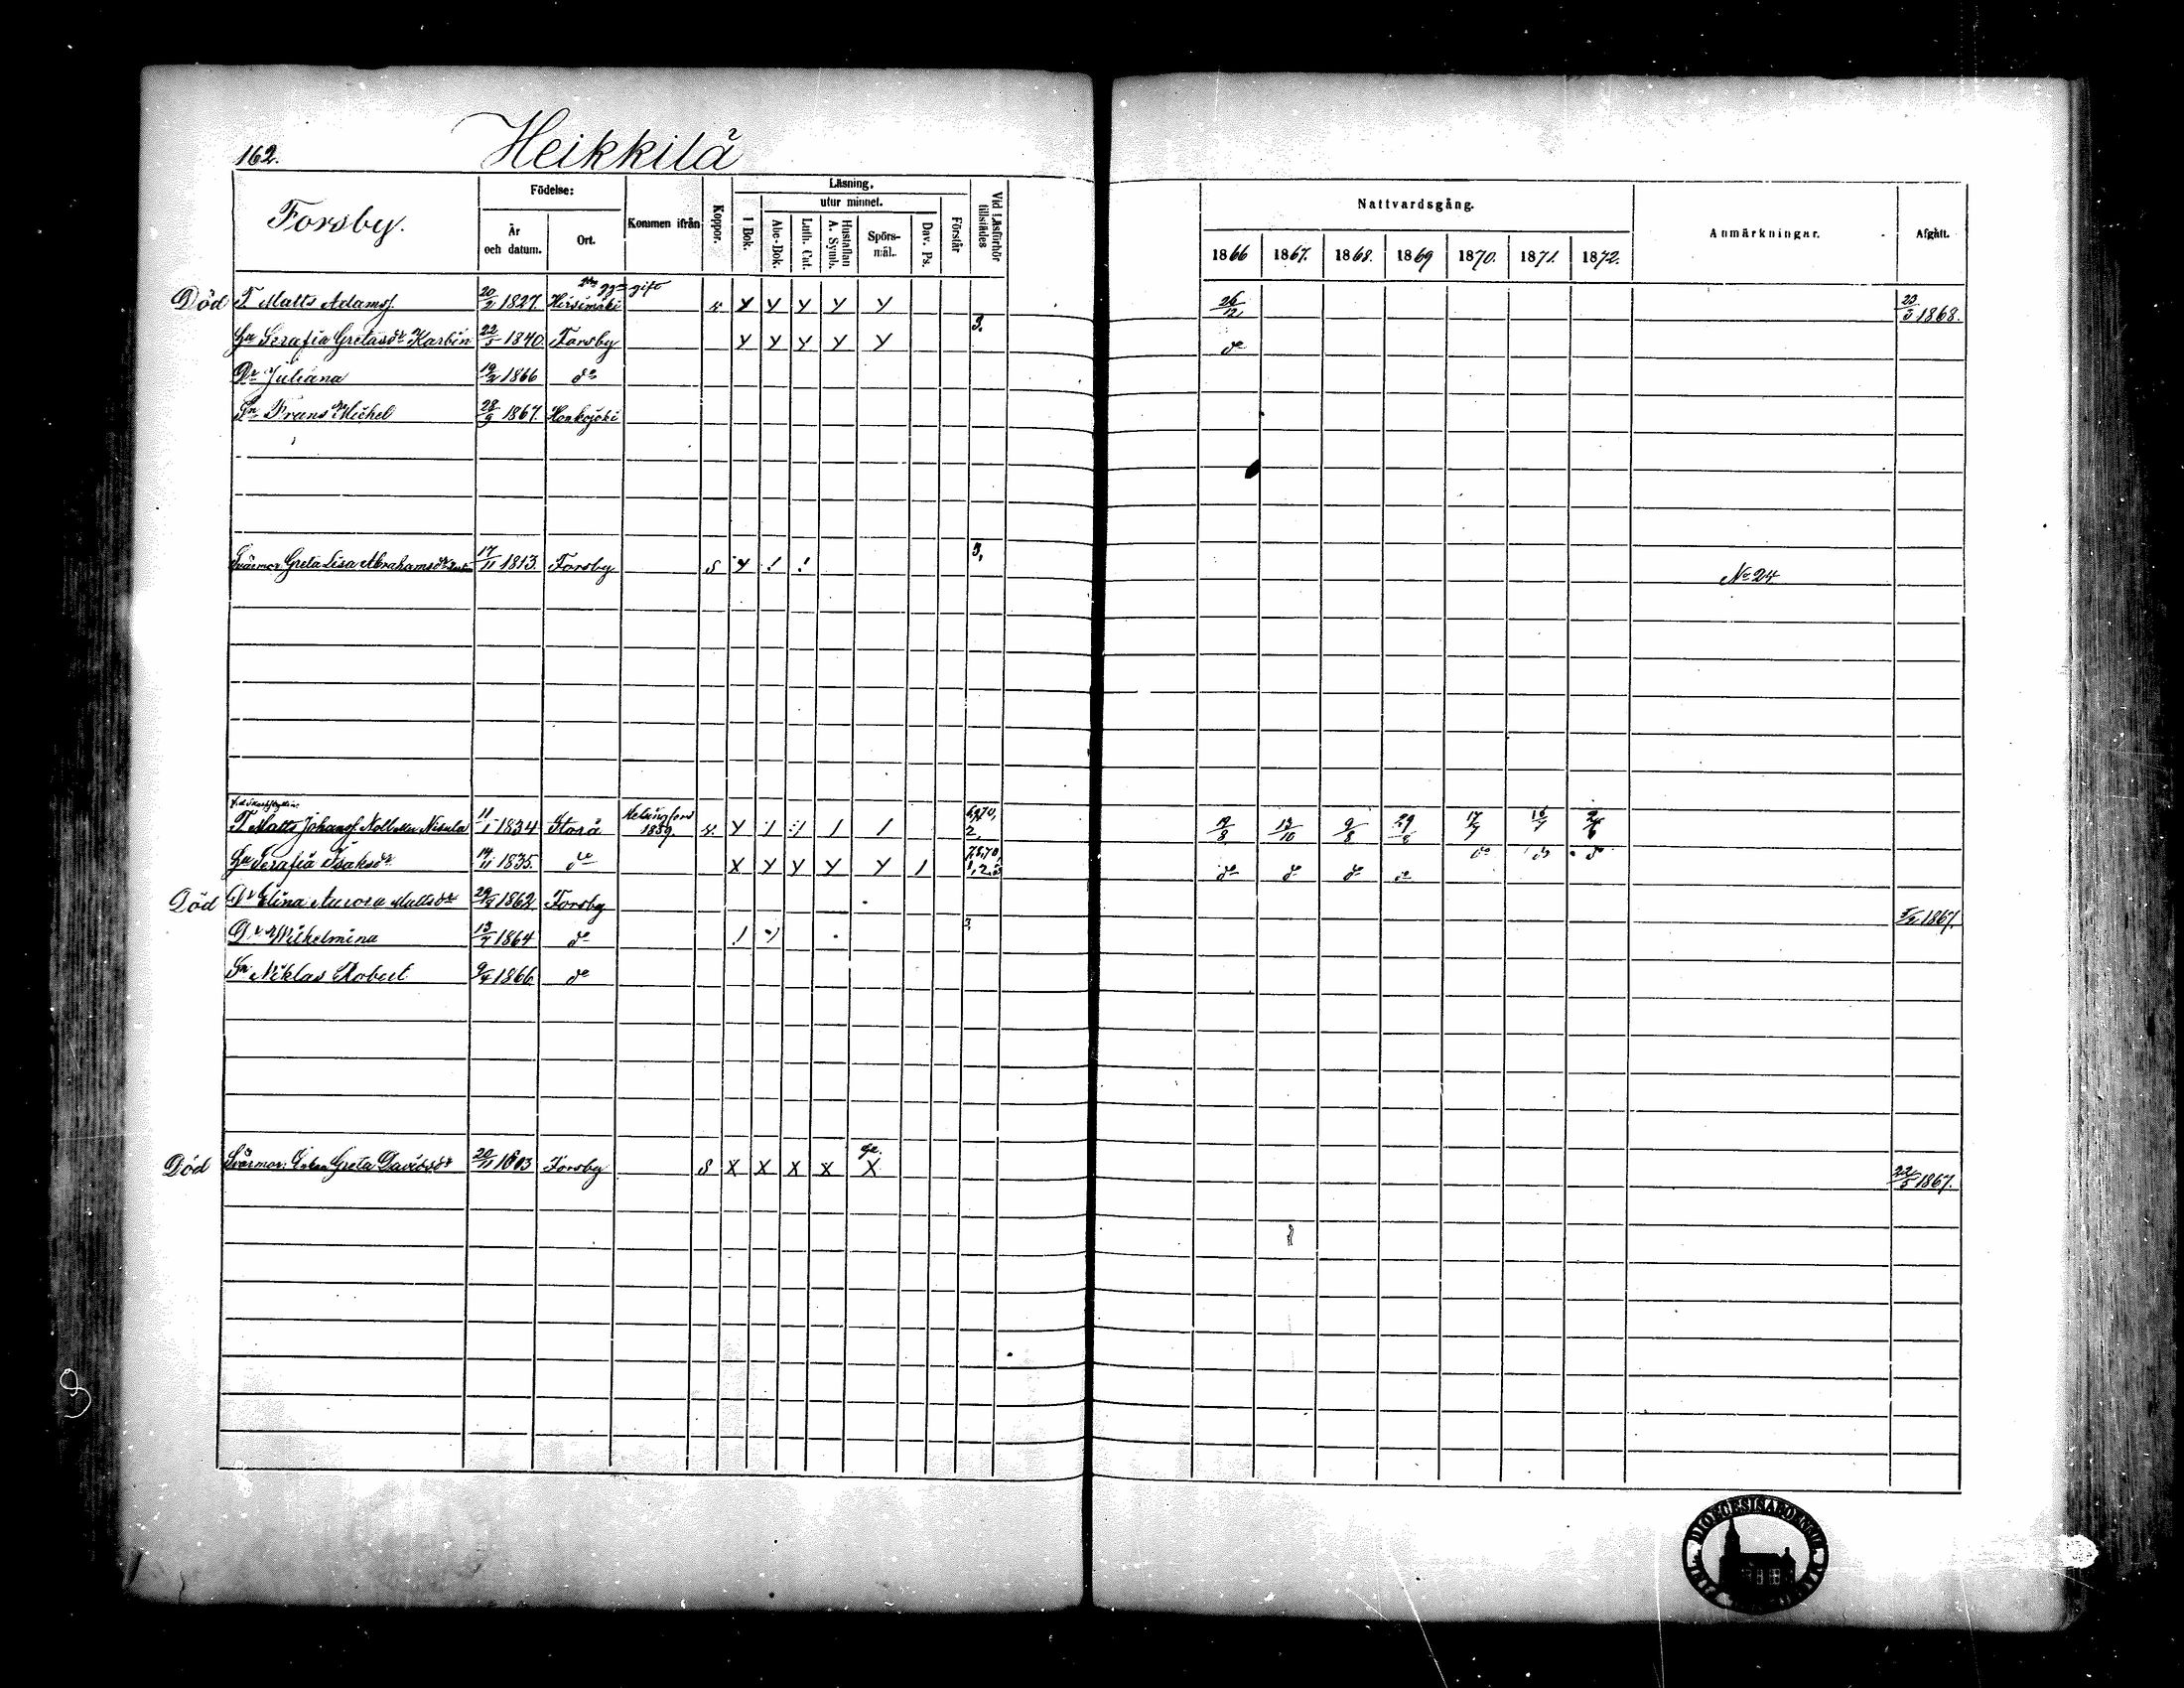 162.
Heikkilä
Forsby.
Födelse:
År och datum.
Ort.
Kommen ifrån
Koppor.
Läsning.
I Bok.
utur minnet.
Abc-Bok.
Luth. Cat.
Hustaflan A. Symb.
Spörs- mål.
Dav. Ps.
Förstår
Vid Läsförhör tillstädes
Nattvardsgång.
1866 1867. 1868. 1869 1870. 1871. 1872.
Anmärkningar.
Afgått.
gift
Död T. Matts Adamsf. 20/2 1827. Heisimäki Y Y Y Y Y 26/12 23/3 1868.
Hu Serafia Gretasdr Karbin 22/5 1840. Forsby Y Y Y Y Y 3. do
Dr Juliana 19/2 1866 do
Sn Frans Michel 28/9 1867. Honkojoki
Svärmor Greta Lisa Abrahamsdr 17/11 1813. Forsby S Y ! ! 3, No 24
T. Matts Johansf. Nisula 11/1 1834 Storå Helsingfors 1859. Y / / / / 2, 19/8 13/10 9/8 29/8 17/7 16/7 2/6
Hu Serafia Isaksdr 14/11 1835. do X Y Y Y Y / 7,8,70, 1,2,3 do do do do do do do
Död Dr Elina Aurora Mattsdr 29/9 1862 Forsby 1867.
Dr Wilhelmina 13/7 1864 do 3
Sn Niklas Robert 9/4 1866. do
Död Svärmor: Enkan Greta Davidsdr 20/11 1803 Forsby S X X X X X 22/5 1867.
DIOECESIS ABOENSIS